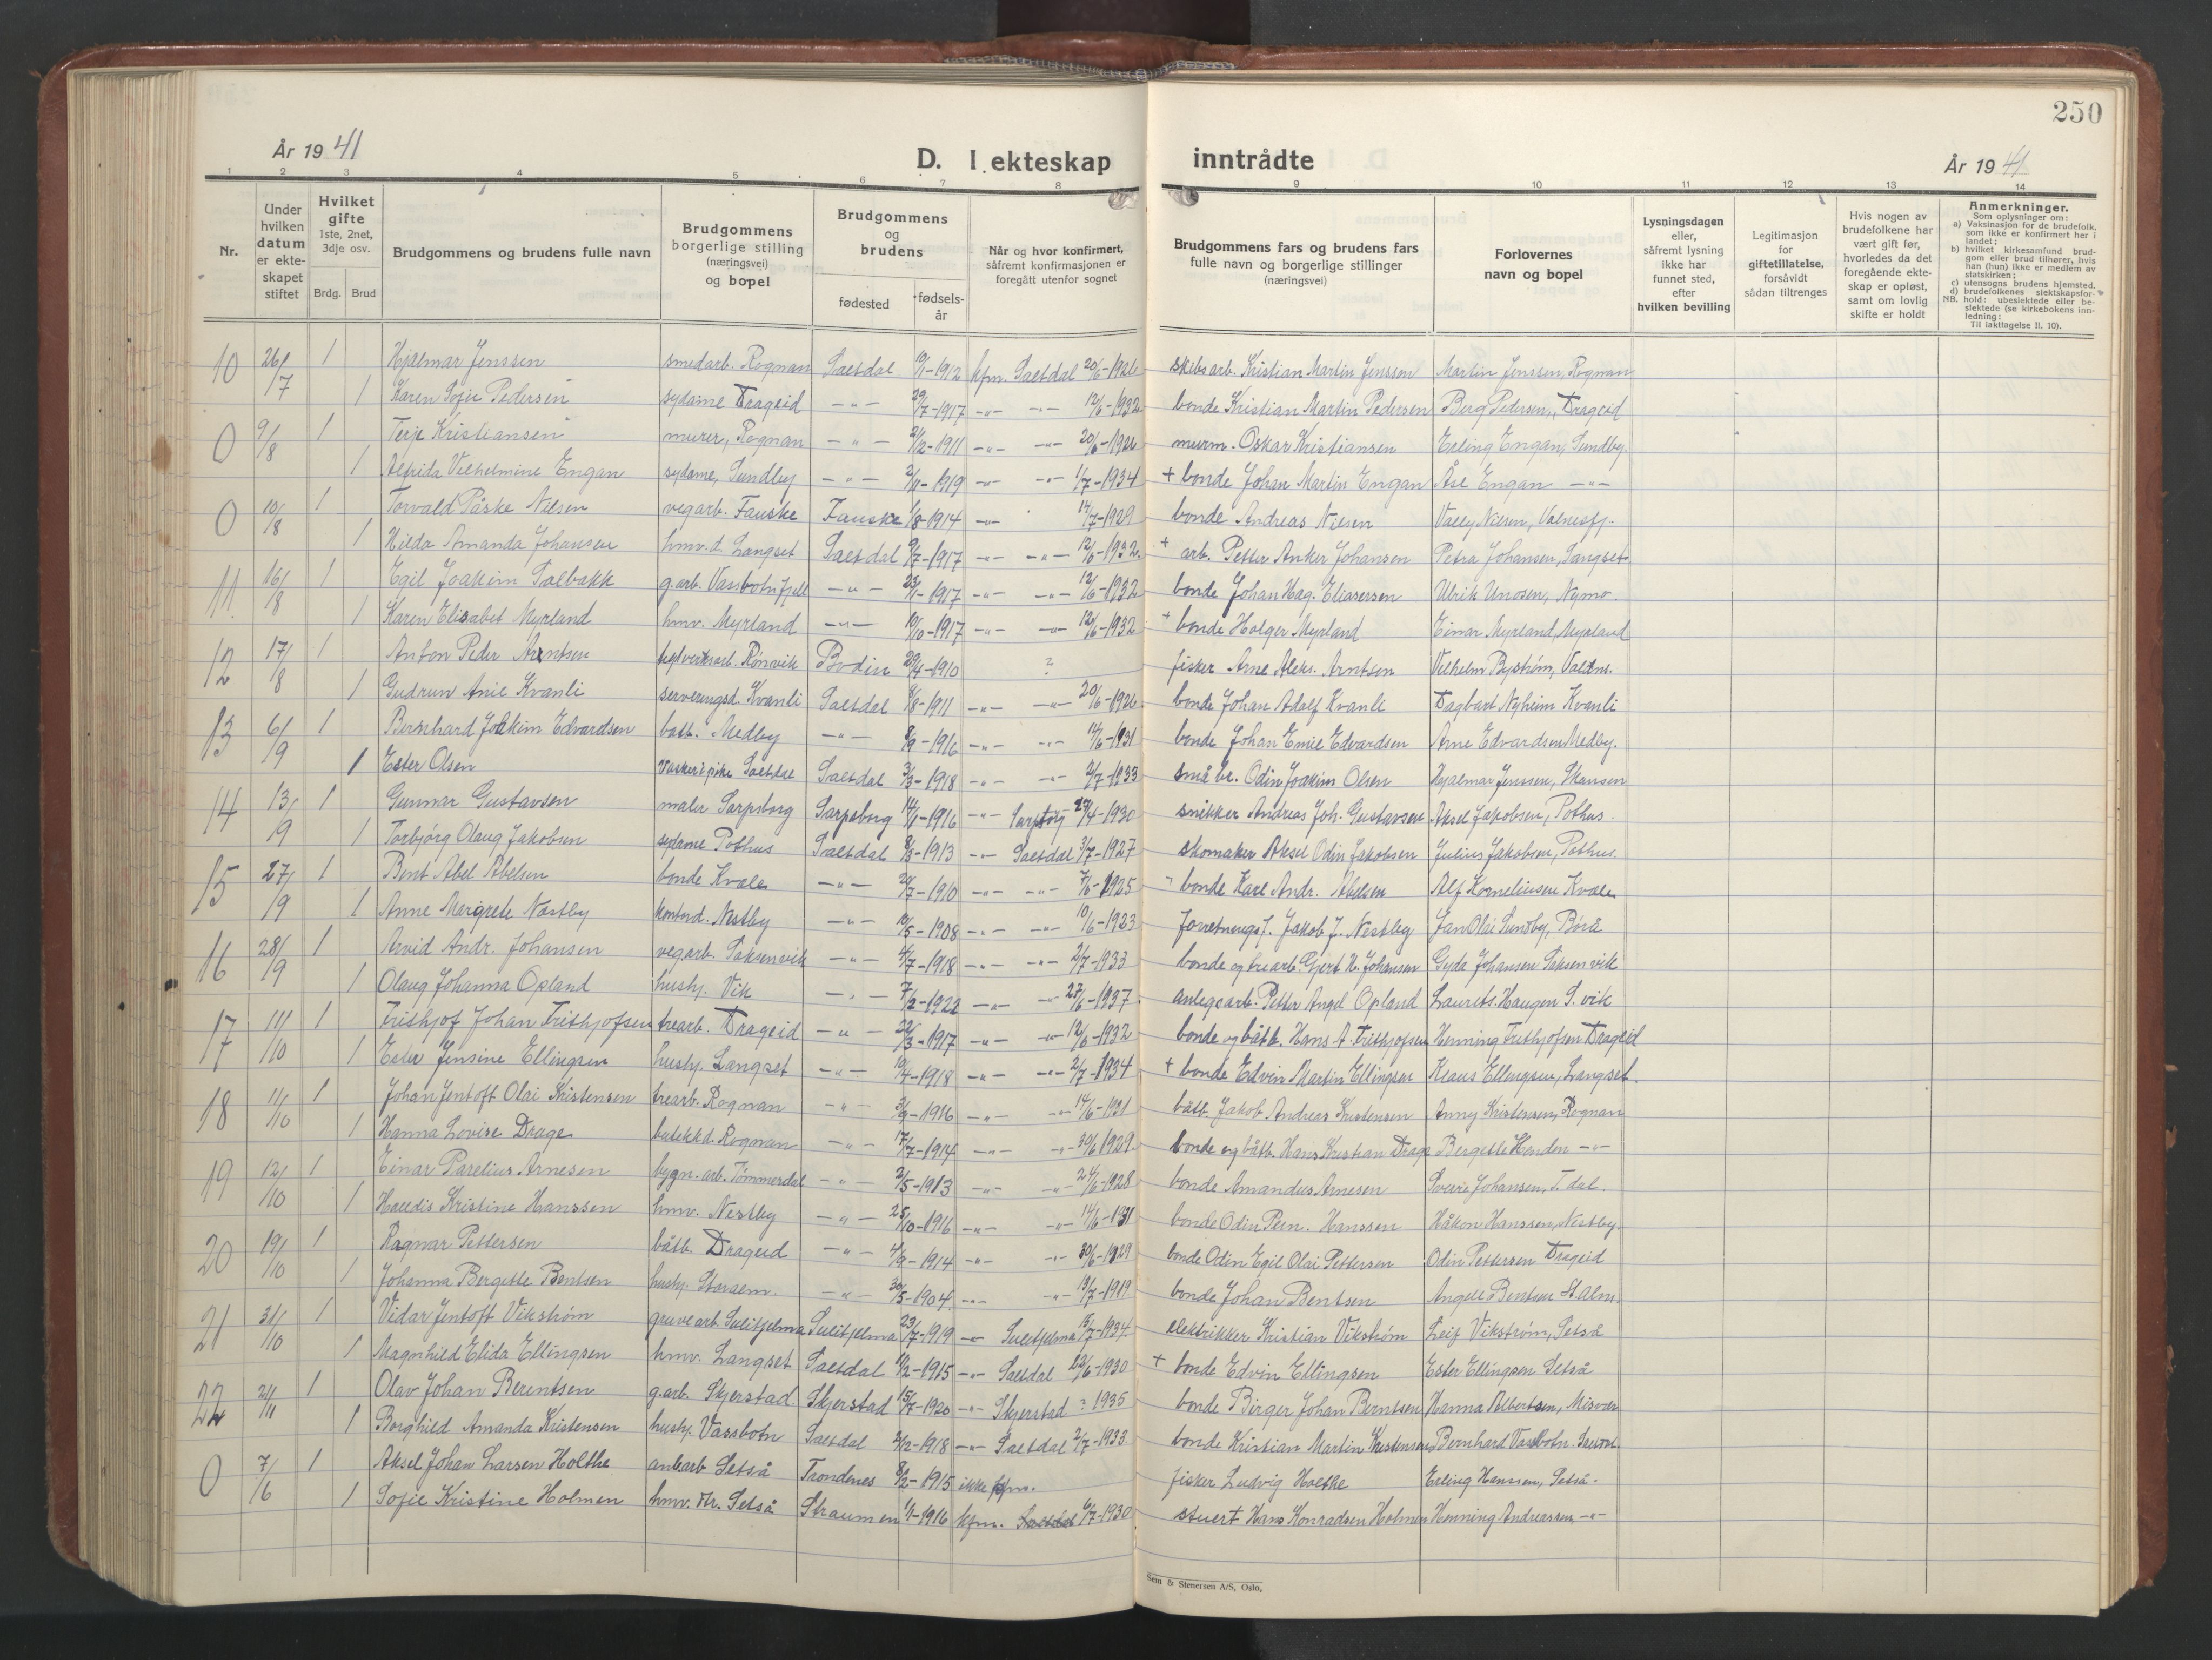 250
År 1941
D. I ekteskap inntrådte
År 1941
1 2 3 4 5 6 7 8 9 10 11 12 13 14
Nr.
Under hvilken datum er ekteskapet stiftet
Hvilket gifte 1ste, 2net, 3dje osv.
Brdg. Brud
Brudgommens og brudens fulle navn
Brudgommens borgerlige stilling (næringsvei) og bopel
Brudgommens og brudens
fødested
fødselsår
Når og hvor konfirmert, såfremt konfirmasjonen er foregått utenfor sognet
Brudgommens fars og brudens fars fulle navn og borgerlige stillinger (næringsvei)
Forlovernes navn og bopel
Lysningsdagen eller, såfremt lysning ikke har funnet sted, efter hvilken bevilling
Legitimasjon for giftetillatelse, forsåvidt sådan tiltrenges
Hvis nogen av brudefolkene har vært gift før, hvorledes da det foregående ekteskap er opløst, samt om lovlig skifte er holdt
Anmerkninger.
Som oplysninger om:
a) Vaksinasjon for de brudefolk, som ikke er konfirmert her i landet;
b) hvilket kirkesamfund brudgom eller brud tilhører, hvis han (hun) ikke er medlem av statskirken;
c) utensogns brudens hjemsted.
d) brudefolkenes slektskapsforhold: ubeslektede eller beslektede (se kirkebokens innledning:
NB. Til iakttagelse lt. 10).
10 26/7 1 Hjalmar Jenssen smedarb. Rognan Saltdal 19/1-1912 kfm. Saltdal 20/6-1926 skibsarb. Kristian Martin Jenssen Martin Jenssen, Rognan
1 Karen Sofie Pedersen sydame Drageid -"- 29/7-1917 -"- -"- 12/6-1932 bonde Kristian Martin Pedersen Berg Pedersen, Drageid
0 9/8 1 Terje Kristiansen murer, Rognan -"- 21/2-1911 -"- -"- 20/6-1926 murm. Oskar Kristiansen Erling Engan, Sundby.
1 Alfrida Vilhelmine Engan sydame, Sundby -"- 2/11-1919 -"- -"- 1/7-1934 + bonde Johan Martin Engan Åse Engan -"-
0 10/8 1 Torvald Påske Nilsen vegarb. Fauske Fauske 1/8-1914 -"- 14/7-1929 bonde Andreas Nilsen Valley Nilsen, Valnesfj.
1 Hilda Amanda Johansen hmv.d. Langset Saltdal 9/7-1917 -"- -"- 12/6-1932. + arb. Petter Anker Johansen Petra Johansen, Langset
11 16/8 1 Egil Joakim Solbakk g.arb. Vassbotnfjell -"- 23/1-1917 -"- -"- 12/6-1932 bonde Johan Hag. Eliasersen Ulrik Unosen, Nymo.
1 Karen Elisabet Myrland hmv. Myrland -"- 10/10-1917 -"- -"- 12/6-1932 + bonde Holger Myrland Einar Myrland, Myrland
12 17/8 1 Anton Peder Arntsen teglverksarb. Rønvik Bodin 29/4-1910 ? fisker Arne Aleks. Arntsen Vilhelm Byström,
1 Gudrun Anie Kvanli serveringsd. Kvanli Saltdal 8/8-1911 -"- -"- 20/6-1926 bonde Johan Adolf Kvanli Dagbart Nyheim Kvanli
13 6/9 1 Bernhard Joakim Edvardsen båtb. Medby -"- 8/9-1916 -"- -"- 14/6-1931 bonde Johan Emil Edvardsen Arne Edvardsen Medby.
1 Ester Olsen vaskeripike Saltdal Saltdal 3/3-1918 -"- -"- 2/7-1933 små br. Odin Joakim Olsen Hjalmar Jenssen, Skansen
14 13/9 1 Gunnar Gustavsen maler Sarpsborg Sarpsborg 14/1-1916 -"- Sarpsborg 27/4-1930 snikker Andreas Joh. Gustavsen Aksel Jakobsen, Pothus.
1 Torbjørg Olaug Jakobsen sydame Pothus Saltdal 8/3-1913 -"- Saltdal 3/7-1927 skomaker Aksel Odin Jakobsen Julius Jakobsen, Pothus.
15 27/9 1 Bent Abel Abelsen bonde Kvale -"- 20/7-1910 -"- -"- 7/6-1925 bonde Karl Andr. Abelsen Alf Korneliusen Kvale
1 Anne Margrete Nestby kontord. Nestby -"- 10/5-1908 -"- -"- 10/6-1923 forretningsf. Jakob J. Nestby Jan Olai Sundby, Borå
16 28/9 1 Arvid Andr. Johansen vegarb. Saksenvik -"- 4/7-1918 -"- -"- 2/7-1933 bonde og trearb. Gjert H. Johansen Gyda Johansen Saksenvik
1 Olaug Johanna Opland hushj. Vik -"- 7/2-1922 -"- -"- 27/6-1937 anlegsarb. Petter Angel Opland Laurits Haugen S.vik
17 11/10 1 Frithjof Johan Frithjofsen trearb. Drageid -"- 22/3-1917 -"- -"- 12/6-1932 bonde og båtb. Hans A. Frithjofsen Henning Frithjofsen Drageid
1 Ester Jensine Ellingsen hushj. Langset -"- 10/7-1918 -"- -"- 2/7-1934 + bonde Edvin Martin Ellingsen Klaus Ellingsen, Langset.
18 11/10 1 Johan Jentoft Olai Kristensen trearb. Rognan -"- 3/9-1916 -"- -"- 14/6-1931 båtb. Jakob Andreas Kristensen Anny Kristensen, Rognan
1 Hanna Lovise Drage butikkd. Rognan -"- 17/7-1914 -"- -"- 30/6 1929 bonde og båtb. Hans Kristian Drage Bergitte Henden -"-
19 12/10 1 Einar Parelius Arnesen bygn.arb. Tømmerdal -"- 2/5-1913 -"- -"- 24/6-1928 bonde Amandus Arnesen Sverre Johansen, T.dal.
1 Halldis Kristine Hanssen hmv. Nestby -"- 25/10-1916 -"- -"- 14/6-1931 bonde Odin Pern. Hanssen Håkon Hanssen, Nestby.
20 19/10 1 Ragnar Pettersen båtb. Drageid -"- 4/9-1914 -"- -"- 30/6-1929 bonde Odin Egil Olai Pettersen Odin Pettersen Drageid
1 Johanna Bergitte Bentsen hushj. Storalm. -"- 30/5-1904 -"- -"- 13/7-1919 bonde Johan Bentsen Angell Bentsen St.Alm.
21 31/10 1 Vidar Jentoft Vikstrøm gruvearb. Sulitjelma Sulitjelma 23/7-1919 -"- Sulitjelma 15/7-1934 elektrikker Kristian Vikstrøm Leif Vikstrøm, Setså
1 Magnhild Elida Ellingsen hmv. Langset Saltdal 11/2-1915 -"- Saltdal 22/6-1930 + bonde Edvin Ellingsen Ester Ellingsen Setså
22 24/11 1 Olav Johan Berentsen g.arb. Skjerstad. Skjerstad 15/7-1920 -"- Skjerstad ? 1935 bonde Birger Johan Berntsen Hanna Albertsen, Misvær
1 Borghild Amanda Kristensen hushj. Vassbotn Saltdal 2/12-1918 -"- Saltdal 2/7-1933 bonde Kristian Martin Kristensen Bernhard Vassbotn
0 7/6 1 Aksel Johan Larsen Holthe anl.arb Setså Trondenes 8/2-1915 ikke kfm. fisker Ludvig Holthe Erling Hanssen, Setså.
1 Sofie Kristine Holmen hmv. Setså Straumen 1/1-1916 kfm. Saltdal 6/7-1930 stuert Hans Konradsen Holmen Henning Andreassen -"-
Sem & Stenersen A/S, Oslo,